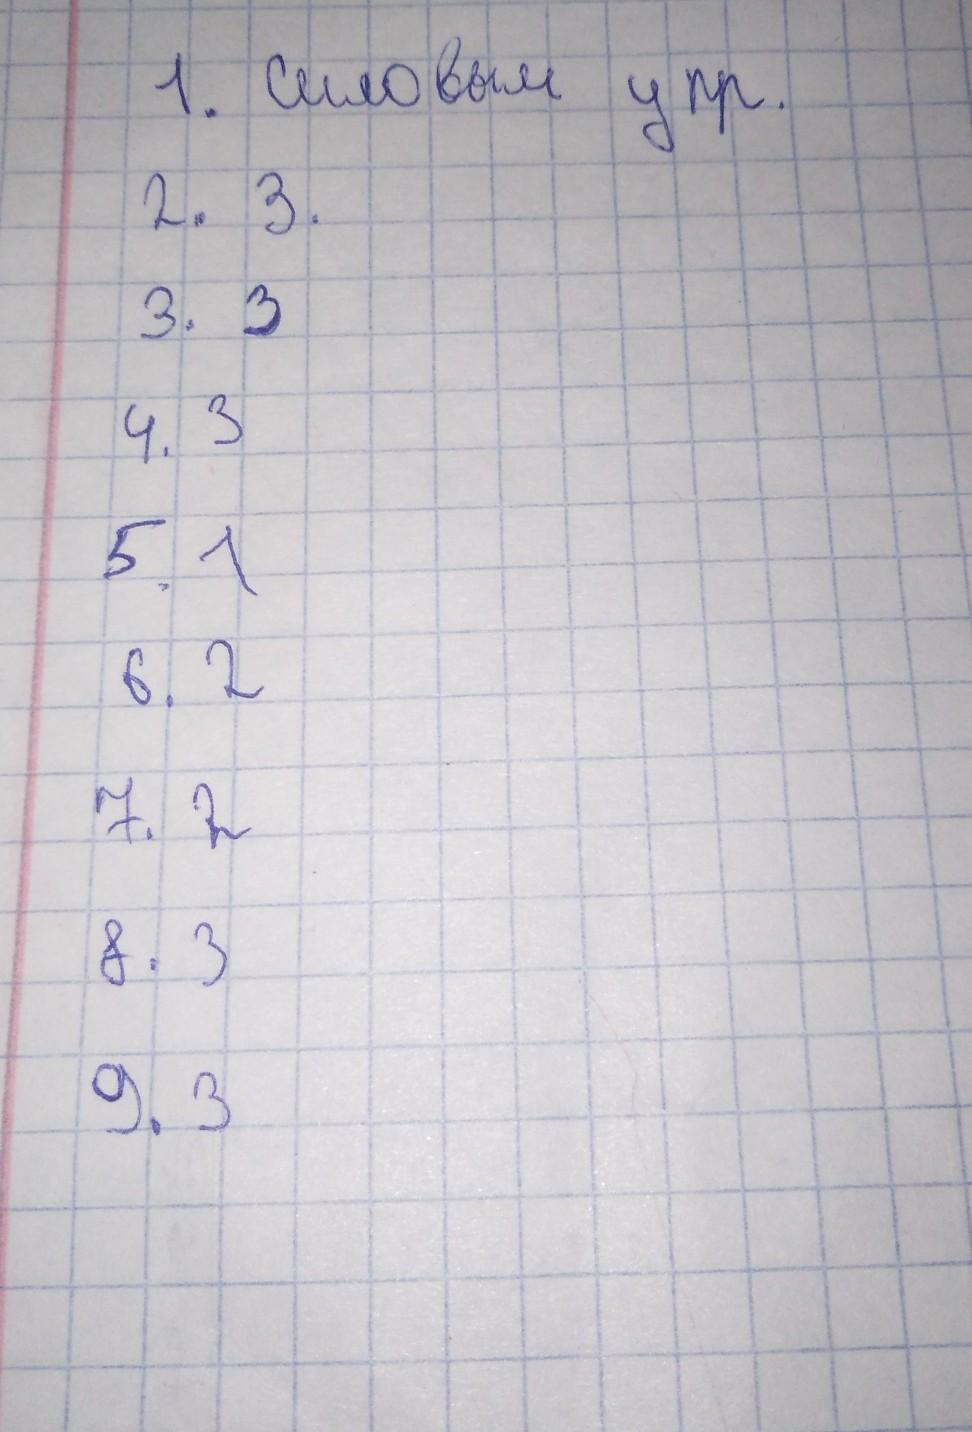 1. Силовым упр.
2. 3.
3. 3
4. 3
5. 1
6. 2
7. 2
8. 3
9. 3